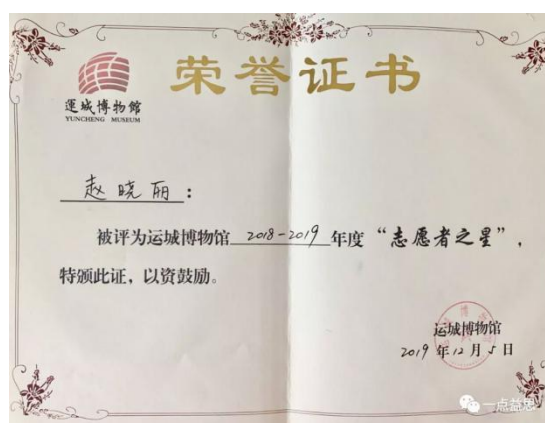 荣誉证书
運城博物館
YUNCHENG MUSEUM
赵晓丽：
被评为运城博物馆 2018-2019 年度“志愿者之星”，
特颁此证，以资鼓励。
运城博物馆
2019年12月5日
一点益思